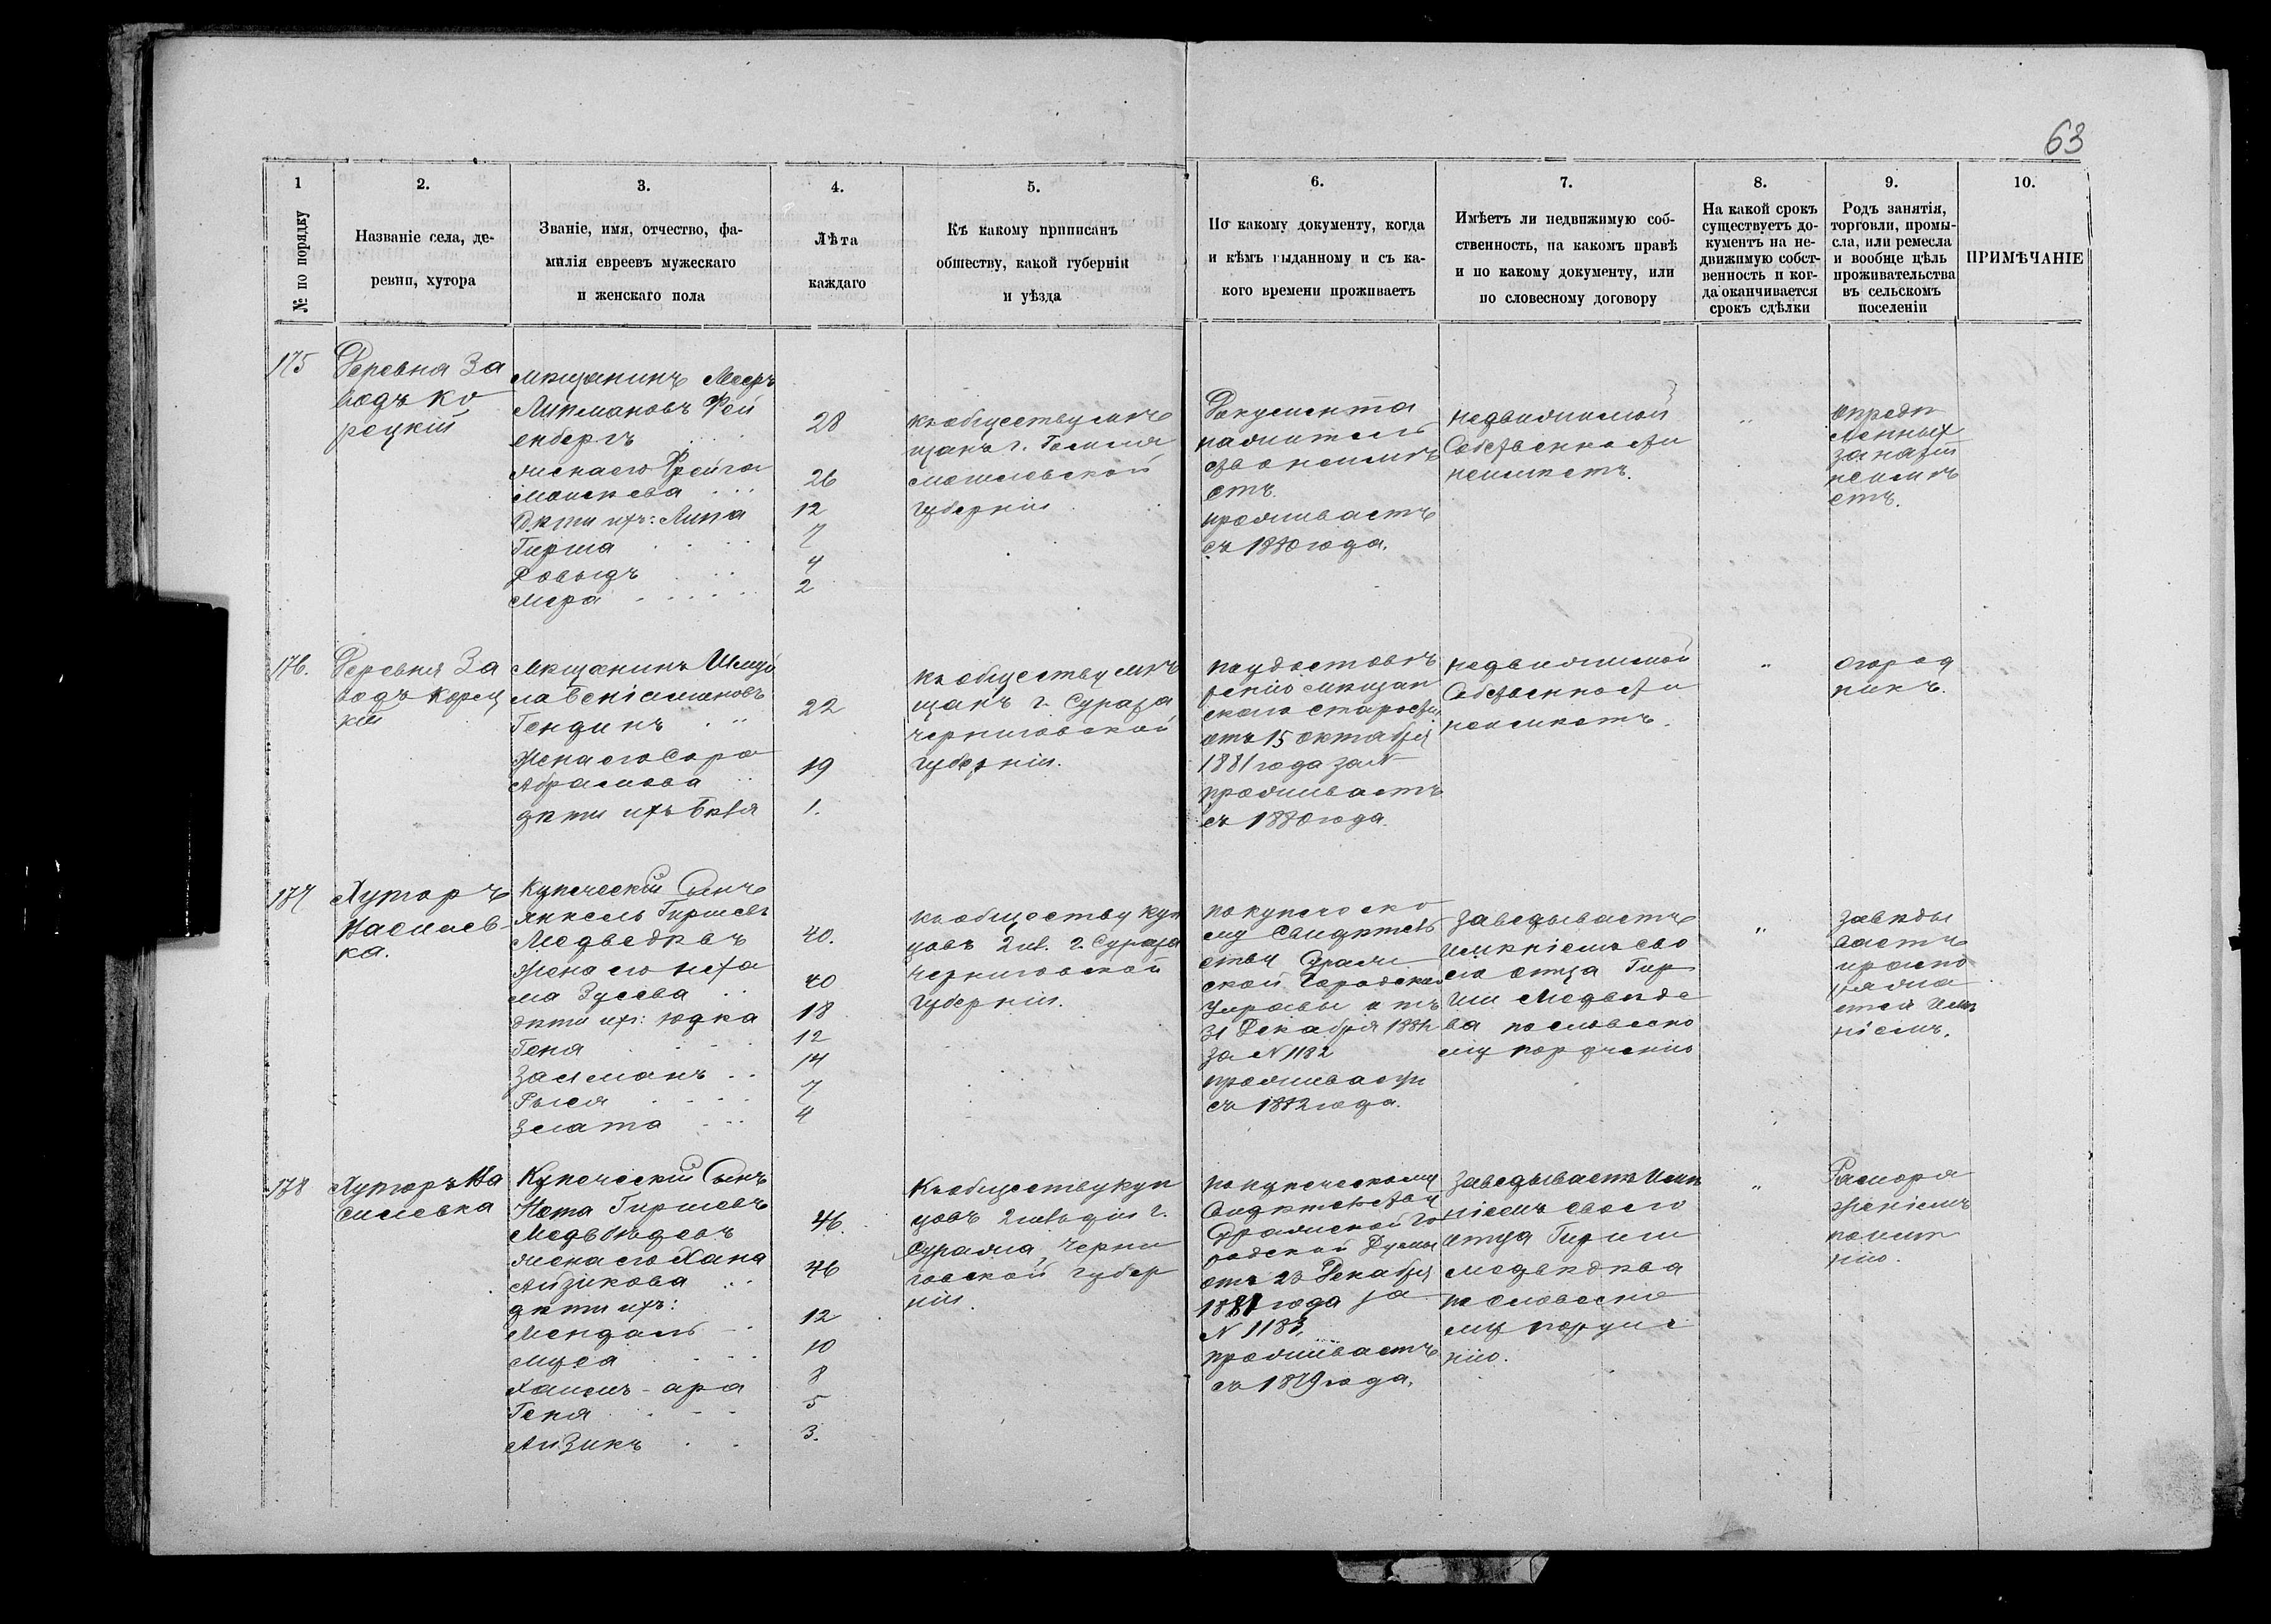 63
1
№ по порядку
2.
Названіе села, де-
ревни, хутора
3.
Званіе, имя, отчество, фа-
милія евреевъ мужескаго
и женскаго пола
4.
Лѣта
каждаго
5.
Къ какому приписанъ
обществу, какой губерніи
и уѣзда
6.
По какому документу, когда
и кѣмъ выданному и съ ка-
кого времени проживаетъ
7.
Имѣетъ ли недвижимую соб-
ственность, на какомъ правѣ
и по какому документу, или
по словесному договору
8.
На какой срокъ
существуетъ до-
кументъ на не-
движимую собст-
венность и ког-
да оканчивается
срокъ сдѣлки
9.
Родъ занятія,
торговли, промы-
сла, или ремесла
и вообще цѣль
проживательства
въ сельскомъ
поселеніи
10.
ПРИМѢЧАНІЕ
175
Деревня За
водъ Ко
рецкій
мѣщанинъ Мееръ
Липмановъ Фей
енбергъ
жена его Фрейга
Мовшева
дѣти ихъ: Липа
Гирша
Довыдъ
Мера
28
26
12
7
4
2
къ обществу мѣ
щанъ г. Гомеля
могилевской
губерніи
Документа
на жительс
тво не имѣ
етъ.
проживаетъ
съ 1880 года.
недвижимой
Собственности
неимѣетъ.
"
опредѣ
ленныхъ
занятій
неимѣ
етъ.
176.
Деревня За
водъ Корец
кій
мѣщанинъ Шмуй
ла Беніаминовъ
Гендинъ
жена его Сора
Абрамова
дѣти ихъ Бейля
22
19
1.
къ обществу мѣ
щанъ г. Суража
черниговской
губерніи.
по удостовѣ
ренію мѣщан
скаго старосты
отъ 15 октября
1881 года за №
проживаетъ
съ 1880 года.
недвижимой
Собственности
неимѣетъ.
"
огород
никъ.
177
Хуторъ
Насилев-
ка.
Купеческій Сынъ
Янкель Гиршевъ
Медведевъ
жена его Неха
ма Зусева
дѣти ихъ: Юдка
Геня
Залманъ
Рыся
Злата
40.
40
18
12
14
7
4
къ обществу куп
цовъ 2 гил. г. Суража
черниговской
губерніи.
по купеческо
му Свидѣтель
ству Сураж
ской Городской
Управы отъ
31 Декабря 1882
за № 1182
проживаетъ
съ 1882 года.
завѣдываетъ
имѣніемъ сво
его отца Гир
ши Медвѣде
ва по словесно
му порученію
"
завѣды
ваетъ
и распо
ряжа
ется имѣ
ніемъ.
178
Хуторъ На
силевка
Купеческій Сынъ
Нота Гиршевъ
Медвѣдевъ
жена его Хана
Айзикова
дѣти ихъ:
Мендаль
Муся
Хаимъ-ара
Геня
Айзикъ
46.
46
12
10
8
5
3.
Къ обществу куп
цовъ 2 гильдіи г.
Суража, Черни
говской губер
ніи.
по купеческому
Свидѣтельству
Суражской Го
родской Думы
отъ 23 Декабря
1881 года за
№ 1183.
проживаетъ
съ 1879 года.
завѣдываетъ имѣ
ніемъ своего
отца Гирши
медвѣдева
по словесно
му поруче
нію.
"
Распоря
женіемъ
по имѣ
нію.